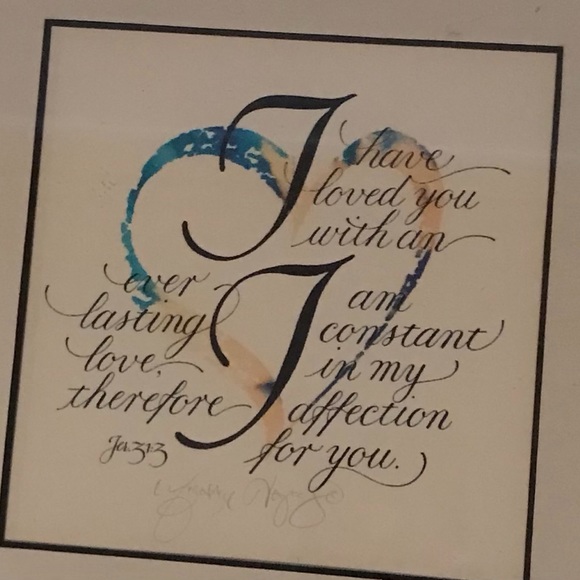 I have
loved you
with an
ever
lasting
love,
therefore
I am
constant
in my
affection
for you.
Je. 31:3